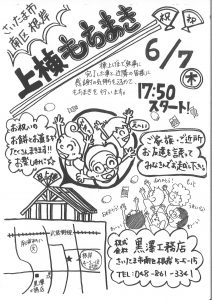 さいたま市
南区 根岸
祝
祝
上棟もちまき
6/7
木
17:50
スタート!
棟上げが無事に
完了した事と近隣の皆様に
感謝の気持ちを込めて、
もちまきを行います。
お祝いの
お餅とお菓子を
たくさんまきます!!
お楽しみに☆
ご家族・ご近所
お友達を誘って
みなさんでお越し下さい。
武蔵野線
株式
会社
黒澤工務店
さいたま市南区根岸5-5-15
TEL:048-861-3341